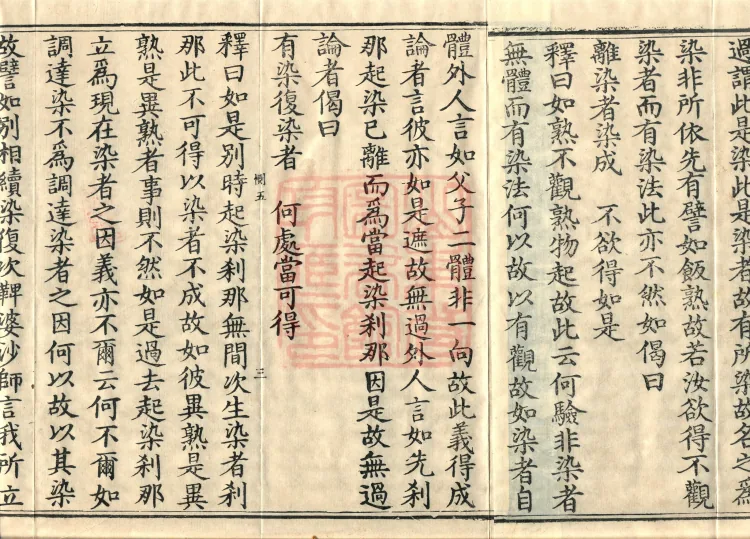 過謂此是染此是染者故有所染故名之爲
染非所依先有譬如飯熟故若汝欲得不觀
染者而有染法此亦不然如偈曰
離染者染成　不欲得如是
釋曰如熟不觀熟物起故此云何驗非染者
無體而有染法何以故以有觀故如染者自
體外人言如父子二體非一向故此義得成
論者言彼亦如是遮故無過外人言如先刹
那起染已離而爲當起染刹那因是故無過
論者偈曰
有染復染者　何處當可得
惻五　三
釋曰如是別時起染刹那無間次生染者刹
那此不可得以染者不成故如彼異熟是異
熟是異熟者事則不然如是過去起染刹那
立爲現在染者之因義亦不爾云何不爾如
調達染不爲調達染者之因何以故以其染
故譬如別相續染復次鞞婆沙師言我所立